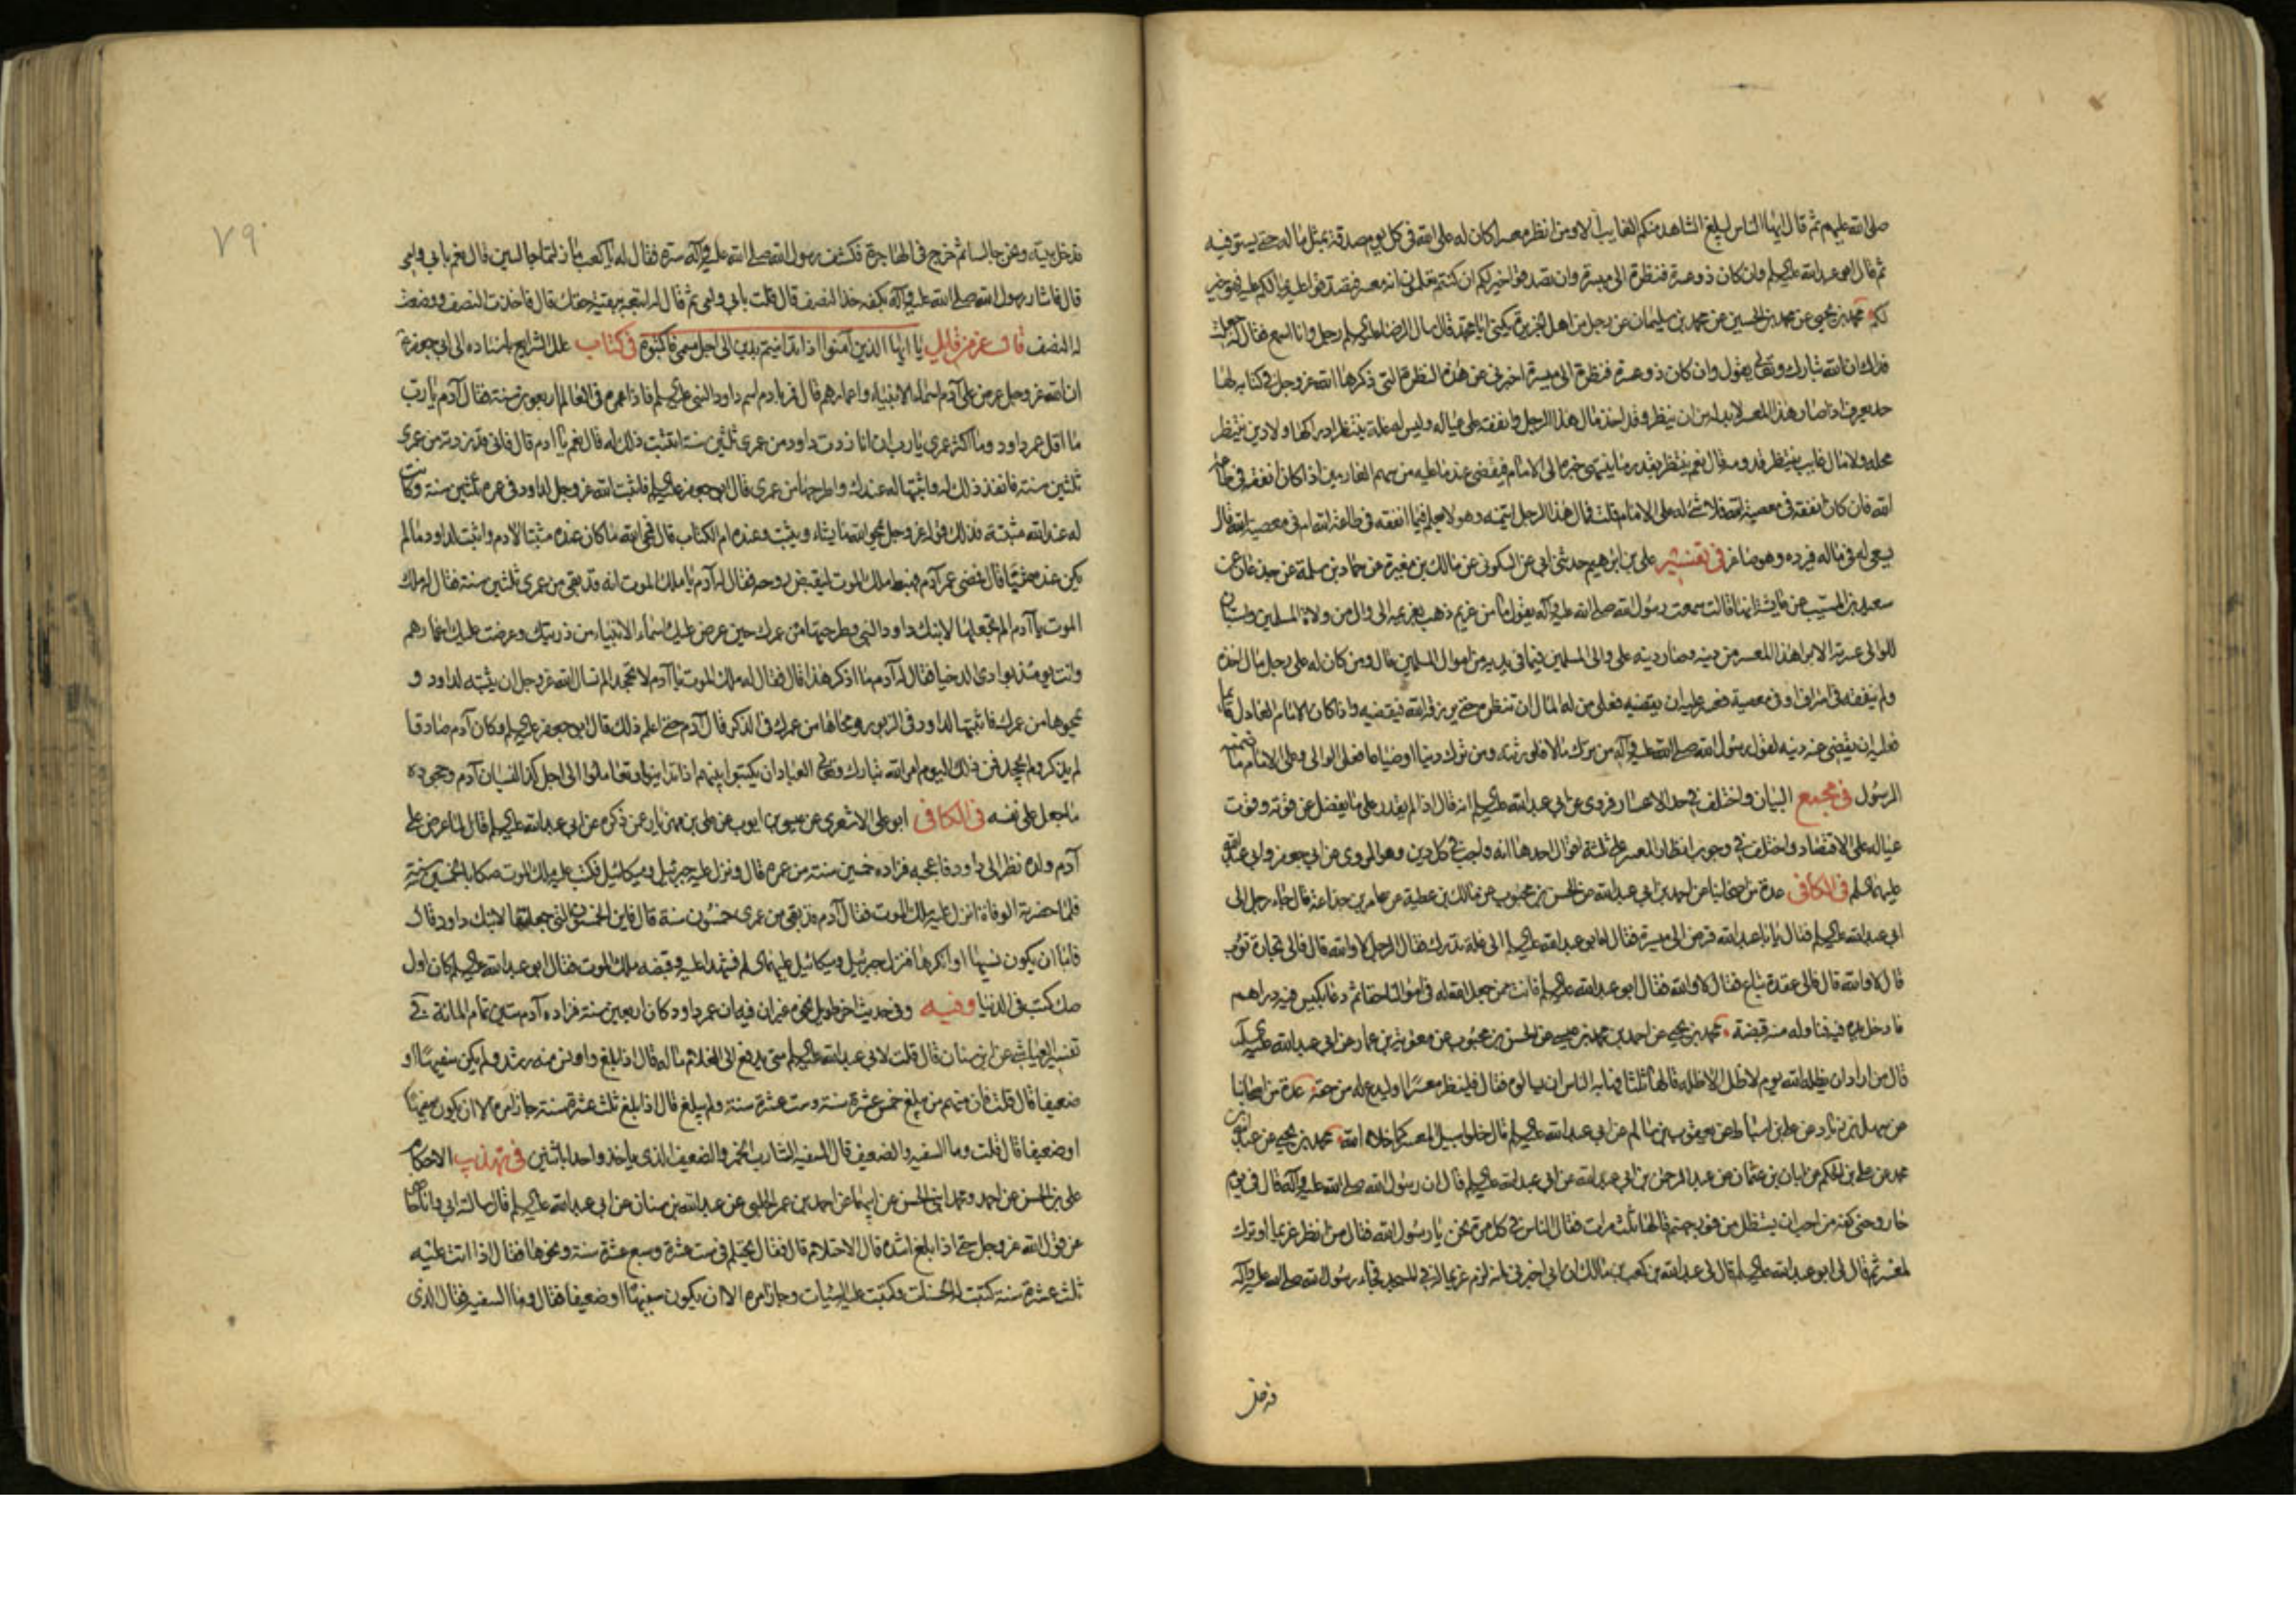 صلى الله عليهم ثم قال ايها الناس ليبلغ الشاهد منكم الغايب الا ومن انظر معسرا كان له على الله في كل يوم صدقة بمثل ماله حتى يستوفيه
ثم قال ابو عبد الله عليه السلم وان كان ذو عسرة فنظرة الى ميسرة وان تصدقوا خير لكم ان كنتم تعلمون انه معسر فتصدقوا عليه بمالكم عليه فهو خير
لكم محمد بن يحيى عن محمد بن الحسين عن محمد بن سليمان عن رجل من اهل الجزيرة يكنى ابا محمد قال سال الرضا عليه السلم رجل وانا اسمع فقال له جعلت
فداك ان الله تبارك وتعالى يقول وان كان ذو عسرة فنظرة الى ميسرة اخبرني عن هذه النظرة التي ذكرها الله عز وجل في كتابه لها
حد يعرف اذا صار هذا المعسر لابد له من ان ينظر وقد اخذ مال هذا الرجل وانفقه على عياله وليس له غلة ينتظر ادراكها ولا دين ينتظر
محله ولا مال غايب ينتظر قدومه قال نعم ينتظر بقدر ما ينتهى خبره الى الامام فيقضى عنه ما عليه من سهم الغارمين اذا كان انفقه في طاعة
الله فان كان انفقه في معصية الله فلا شئ له على الامام قلت فمال هذا الرجل ائتمنه وهو لا يعلم فيما انفقه في طاعة الله ام في معصية الله قال
يسعى له في ماله فيرده وهو صاغر في تفسير علي بن ابرهيم حدثني ابي عن السكوني عن مالك بن مغيرة عن حماد بن سلمة عن جدعان عن
سعيد بن المسيب عن عايشة انها قالت سمعت رسول الله صلى الله عليه وآله يقول ما من غريم ذهب بغريمه الى وال من ولاة المسلمين واستبان
للوالي عسرته الا برا هذا المعسر من دينه وصار دينه على والي المسلمين فيما في يديه من اموال المسلمين قال ومن كان له على رجل مال اخذه
ولم ينفقه في اسراف او في معصية فعسر عليه ان يقضيه فعلى من له المال ان ينظره حتى يرزقه الله فيقضيه واذا كان الامام العادل قايما
فعليه ان يقضى عنه دينه لقول رسول الله صلى الله عليه وآله من ترك مالا فلورثته ومن ترك دينا او ضياعا فعلى الوالي وعلى الامام ما ضمنه
الرسول في مجمع البيان واختلف في حد الاعسار فروي عن ابي عبد الله عليه السلم انه قال اذا لم يقدر على ما يفضل عن قوته وقوت
عياله على الاقتصاد واختلف في وجوب انظار المعسر على ثلثة اقوال احدها انه واجب في كل دين وهو المروي عن ابي جعفر وابي عبد الله
عليهما السلم في الكافي عدة من اصحابنا عن احمد بن ابي عبد الله عن الحسن بن محبوب عن مالك بن عطية عن عامر بن جذاعة قال جاء رجل الى
ابي عبد الله عليه السلم فقال يا ابا عبد الله قرض الى ميسرة فقال له ابو عبد الله عليه السلم الى غلة تدرك فقال الرجل لا والله قال فالى تجارة تؤب
قال لا والله قال فالى عقدة تباع فقال لا والله فقال ابو عبد الله عليه السلم فانت ممن جعل الله له في اموالنا حقا ثم دعا بكيس فيه دراهم
فادخل يده فيه فناوله منه قبضة محمد بن يحيى عن احمد بن محمد بن عيسى عن الحسن بن محبوب عن معوية بن عمار عن ابي عبد الله عليه السلم
قال من اراد ان يظله الله يوم لا ظل الا ظله قالها ثلثا فهابه الناس ان يسالوه فقال فلينظر معسرا او ليدع له من حقه عدة من اصحابنا
عن سهل بن زياد عن علي بن اسباط عن يعقوب بن سالم عن ابي عبد الله عليه السلم قال خلوا سبيل المعسر كما خلاه الله محمد بن يحيى عن عبد الله بن
محمد عن علي بن الحكم عن ابان بن عثمان عن عبد الرحمن بن ابي عبد الله عن ابي عبد الله عليه السلم قال ان رسول الله صلى الله عليه وآله قال في يوم
حار وحنى كفه من احب ان يستظل من فور جهنم قالها ثلث مرات فقال الناس في كل مرة نحن يا رسول الله فقال من انظر غريما او ترك
لمعسر ثم قال لي ابو عبد الله عليه السلم قال لي عبد الله بن كعب بن مالك ان ابي اخبرني انه لزم غريما له في المسجد فجاء رسول الله صلى الله عليه وآله
فدخل
٧٩
فدخل بيته ونحن جالسان ثم خرج في الهاجرة فكشف رسول الله صلى الله عليه وآله ستره فقال له يا كعب ما زلتما جالسين قال نعم بابي وامي
قال فاشار رسول الله صلى الله عليه وآله بكفه خذ النصف قال قلت بابي وامي ثم قال له اتبعه ببقية حقك قال فاخذت النصف ووضعت
له النصف قال عز من قايل يا ايها الذين آمنوا اذا تداينتم بدين الى اجل مسمى فاكتبوه في كتاب علل الشرايع باسناده الى ابي جعفر
ان الله عز وجل عرض على آدم اسماء الانبياء واعمارهم قال فمر بادم اسم داود النبي عليه السلم فاذا عمره في العالم اربعون سنة فقال آدم يا رب
ما اقل عمر داود وما اكثر عمري يا رب ان انا زدت داود من عمري ثلثين سنة اتثبت ذلك له قال نعم يا ادم قال فاني قد زدته من عمري
ثلثين سنة فانفذ ذلك له واثبتها له عندك واطرحها من عمري قال ابو جعفر عليه السلم فاثبت الله عز وجل لداود في عمره ثلثين سنة وكانت
له عند الله مثبتة فذلك قوله عز وجل يمحو الله ما يشاء ويثبت وعنده ام الكتاب قال فمحى الله ما كان عنده مثبتا لادم واثبت لداود ما لم
يكن عنده مثبتا قال فمضى عمر آدم فهبط ملك الموت ليقبض روحه فقال له آدم يا ملك الموت انه قد بقي من عمري ثلثين سنة فقال له ملك
الموت يا آدم الم تجعلها لابنك داود النبي وطرحتها من عمرك حين عرض عليك اسماء الانبياء من ذريتك وعرضت عليك اعمارهم
وانت يومئذ بوادى الدخيا فقال له آدم ما اذكر هذا قال فقال له ملك الموت يا آدم لا تجحد الم تسال الله عز وجل ان يثبته لداود و
يمحوها من عمرك فاثبتها لداود في الزبور ومحاها من عمرك في الذكر قال آدم حتى اعلم ذلك قال ابو جعفر عليه السلم وكان آدم صادقا
لم يذكر ولم يجحد فمن ذلك اليوم امر الله تبارك وتعالى العباد ان يكتبوا بينهم اذا تداينوا وتعاملوا الى اجل كذا لنسيان آدم وجحوده
ما جعل على نفسه في الكافي ابو علي الاشعري عن عيسى بن ايوب عن علي بن مهزيار عمن ذكره عن ابي عبد الله عليه السلم قال لما عرض على
آدم ولده نظر الى داود فاعجبه فزاده خمسين سنة من عمره قال ونزل عليه جبرئيل وميكائيل فكتب عليه ملك الموت صكا بالخمسين سنة
فلما حضرته الوفاة انزل عليه ملك الموت فقال آدم قد بقي من عمري خمسون سنة قال فاين الخمسون التي جعلتها لابنك داود قال
فاما ان يكون نسيها او انكرها فنزل جبرئيل وميكائيل عليهما السلم فشهدا عليه وقبضه ملك الموت فقال ابو عبد الله عليه السلم كان اول
صك كتب في الدنيا وفيه وفي حديث اخر طويل نحوه غير ان فيه ان عمر داود كان اربعين سنة فزاده آدم ستين تمام المائة في
تفسير العياشي عن ابن سنان قال قلت لابي عبد الله عليه السلم متى يدفع الى الغلام ماله قال اذا بلغ واونس منه رشد ولم يكن سفيها او
ضعيفا قال قلت فان منهم من يبلغ خمس عشرة سنة وست عشرة سنة ولم يبلغ قال اذا بلغ ثلث عشرة سنة جاز امره الا ان يكون سفيها
او ضعيفا قال قلت وما السفيه والضعيف قال السفيه الشارب الخمر والضعيف الذي ياخذ واحدا باثنين في تهذيب الاحكام
علي بن الحسن عن احمد ومحمد ابني الحسن عن ابيهما عن احمد بن عمر الحلبي عن عبد الله بن سنان عن ابي عبد الله عليه السلم قال ساله ابي وانا حاضر
عن قول الله عز وجل حتى اذا بلغ اشده قال الاحتلام قال فقال يحتلم في ست عشرة وسبع عشرة سنة ونحوها فقال اذا اتت عليه
ثلث عشرة سنة كتبت له الحسنات وكتبت عليه السيئات وجاز امره الا ان يكون سفيها او ضعيفا فقال وما السفيه فقال الذي